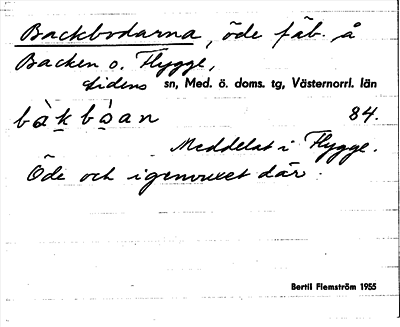 Backbodarna, öde fäb. å
Backen o. Flygge,
Lidens sn, Med. ö. doms. tg, Västernorrl. län
bàkbòan 84.
Meddelat i Flygge.
Öde och igenvuxet där.
Bertil Flemström 1955